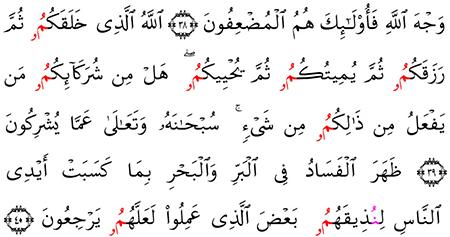 وَجْهَ ٱللَّهِ فَأُوْلَـٰٓئِكَ هُمُ ٱلْمُضْعِفُونَ ٣٨ ٱللَّهُ ٱلَّذِى خَلَقَكُمُۥ ثُمَّ
رَزَقَكُمُۥ ثُمَّ يُمِيتُكُمُۥ ثُمَّ يُحْيِيكُمُۥ ۖ هَلْ مِن شُرَكَآئِكُمُۥ مَن
يَفْعَلُ مِن ذَٰلِكُمُۥ مِن شَىْءٍۢ ۚ سُبْحَـٰنَهُۥ وَتَعَـٰلَىٰ عَمَّا يُشْرِكُونَ
٣٩ ظَهَرَ ٱلْفَسَادُ فِى ٱلْبَرِّ وَٱلْبَحْرِ بِمَا كَسَبَتْ أَيْدِى
ٱلنَّاسِ لِنُذِيقَهُمُۥ بَعْضَ ٱلَّذِى عَمِلُوا۟ لَعَلَّهُمُۥ يَرْجِعُونَ ٤٠